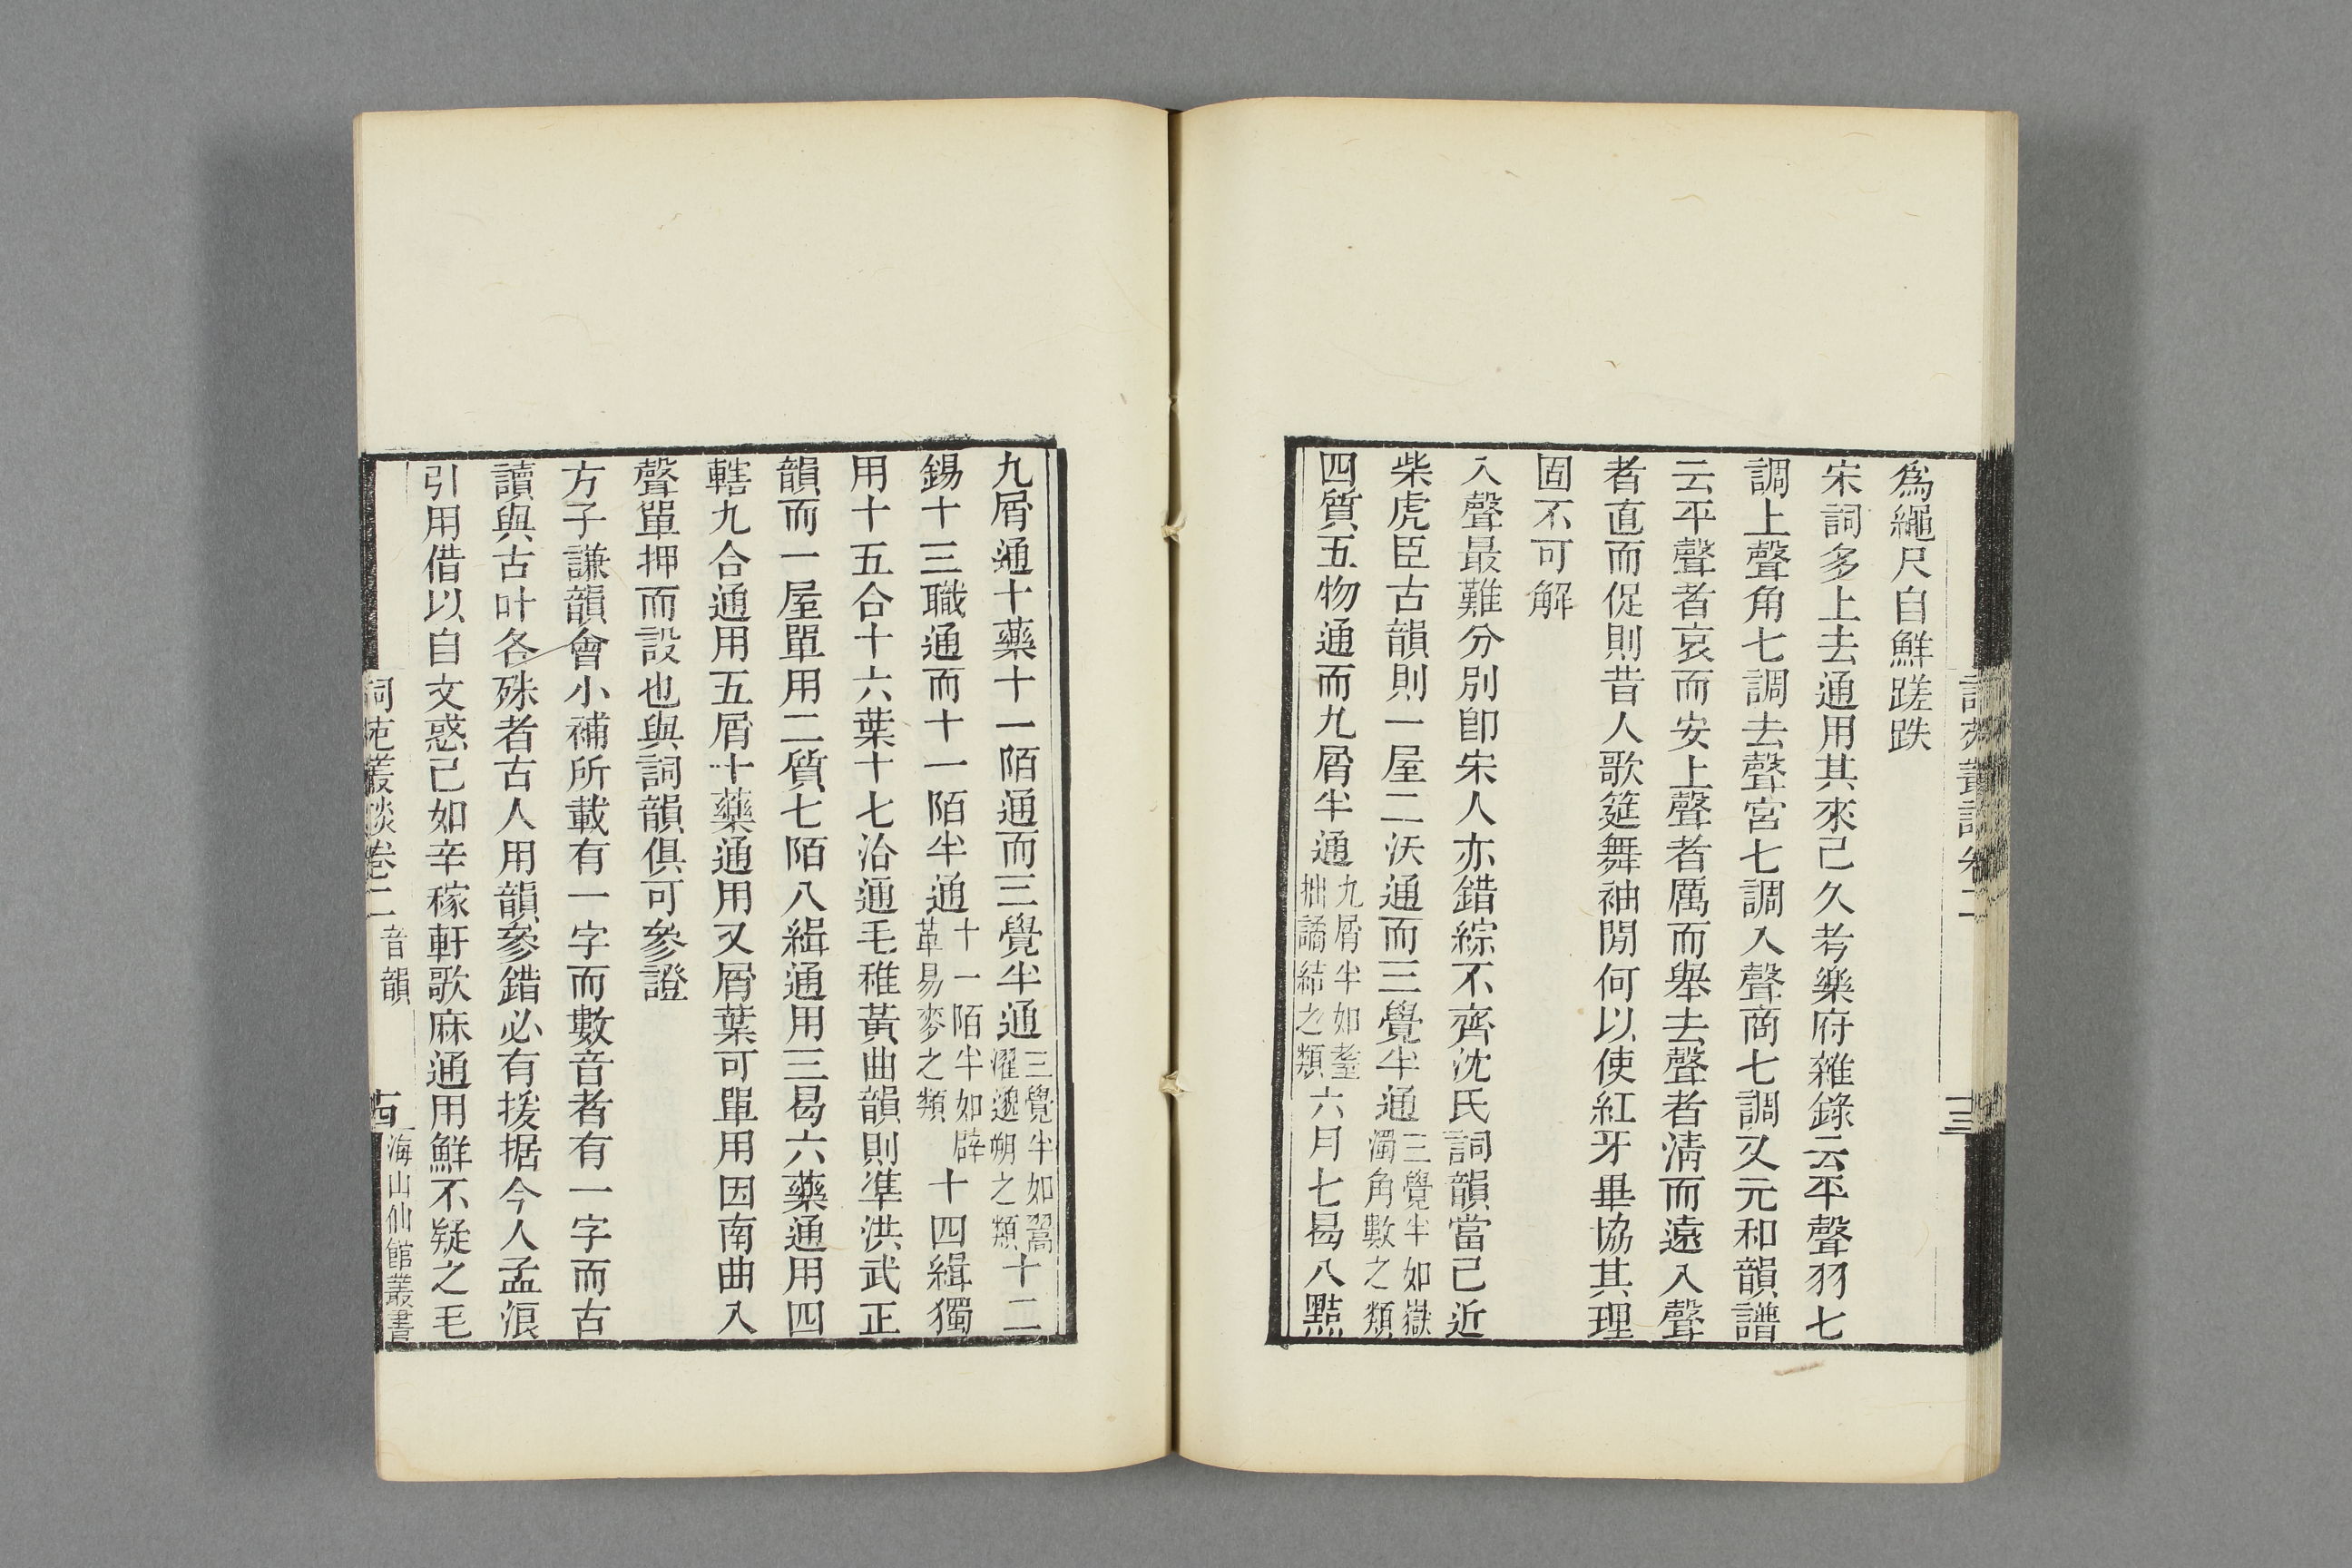 詞苑叢談卷二
十三
為繩尺自鮮蹉跌
宋詞多上去通用其來已久考樂府雜錄云平聲羽七
調上聲角七調去聲宮七調入聲商七調又元和韻譜
云平聲者哀而安上聲者厲而舉去聲者淸而遠入聲
者直而促則昔人歌筵舞袖閒何以使紅牙畢協其理
固不可解
入聲最難分別卽宋人亦錯綜不齊沈氏詞韻當已近
柴虎臣古韻則一屋二沃通而三覺半通三覺半如嶽濁角數之類
四質五物通而九屑半通九屑半如耋拙譎結之類六月七曷八黠
九屑通十藥十一陌通而三覺半通三覺半如翯濯邈朔之類十二
錫十三職通而十一陌半通十一陌半如辟革易麥之類十四緝獨
用十五合十六葉十七洽通毛稚黃曲韻則準洪武正
韻而一屋單用二質七陌八緝通用三曷六藥通用四
轄九合通用五屑十藥通用又屑葉可單用因南曲入
聲單押而設也與詞韻俱可參證
方子謙韻會小補所載有一字而數音者有一字而古
讀與古叶各殊者古人用韻參錯必有援据今人孟浪
引用借以自文惑已如辛稼軒歌麻通用鮮不疑之毛
詞苑叢談卷二 音韻
十四
海山仙館叢書